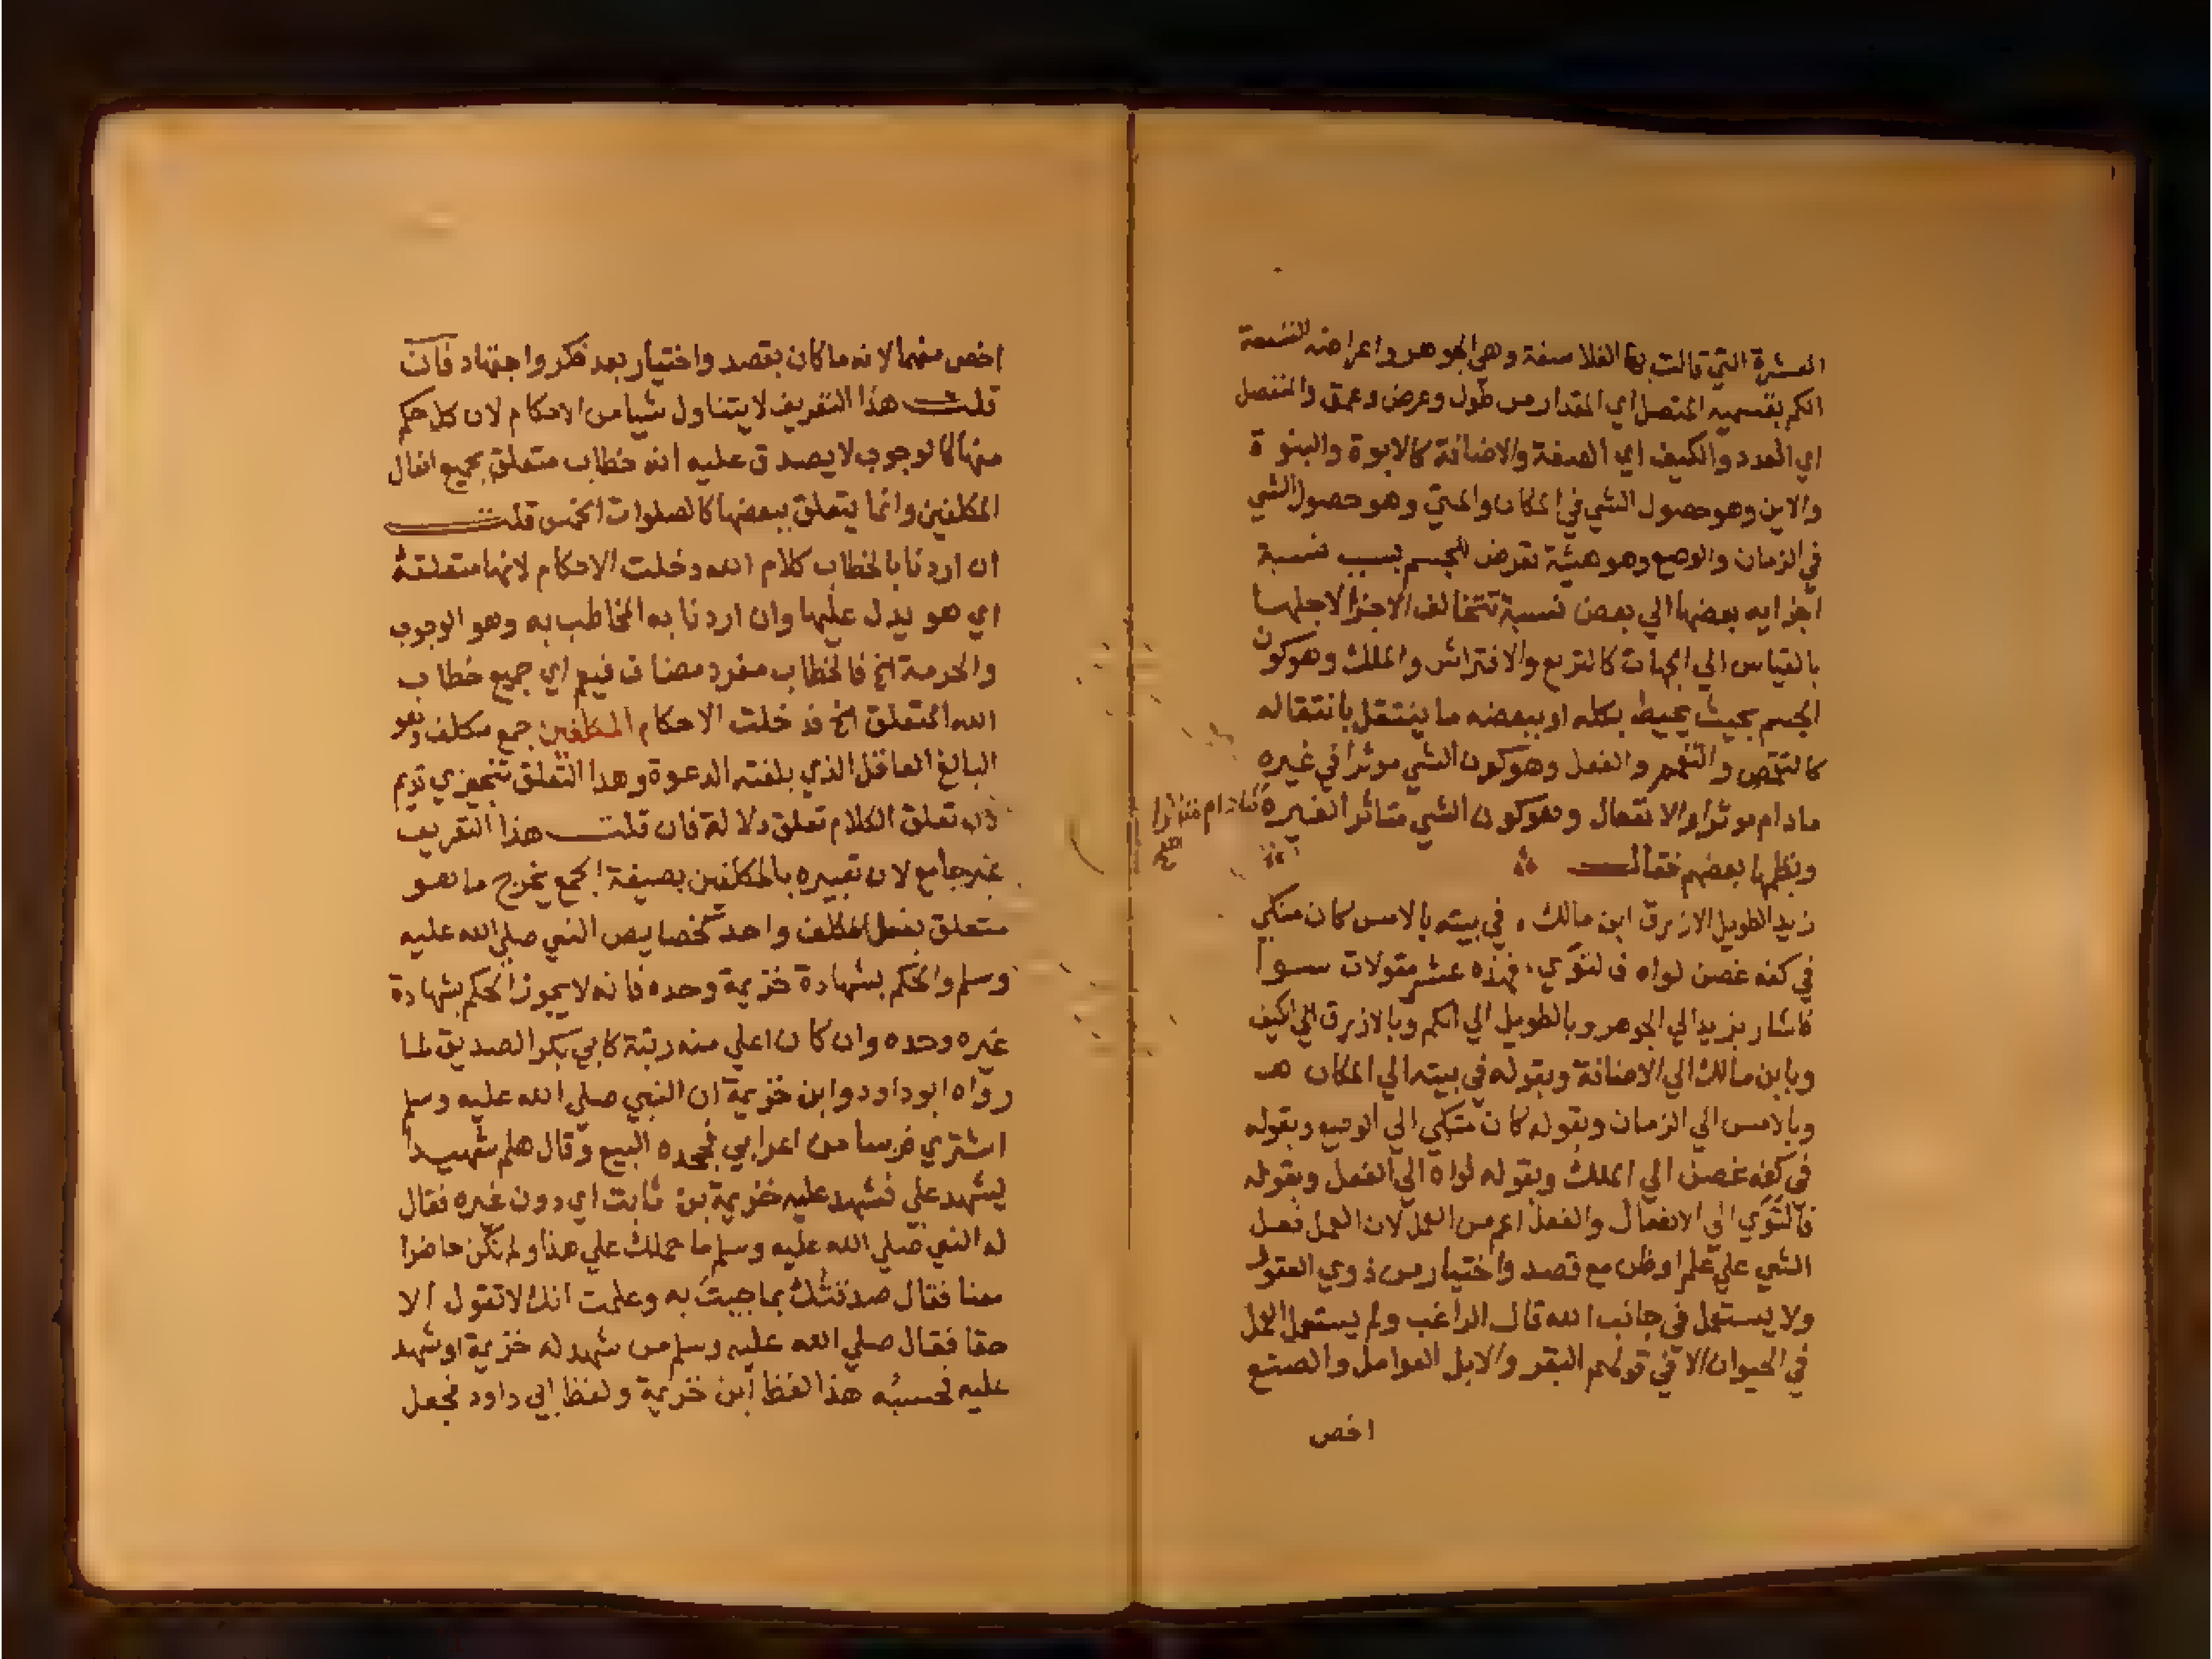 العشرة التي قالت بها الفلاسفة وهي الجوهر واعراضه التسعة
الكم بقسميه المتصل اي المقدار من طول وعرض وعمق والمنفصل
اي العدد والكيف اي الصفة والاضافة كالابوة والبنوة
والاين وهو حصول الشي في المكان والمتي وهو حصول الشي
في الزمان والوضع وهو هيئة تعرض للجسم بسبب نسبة
اجزايه بعضها الي بعض نسبة تتخالف الاجزا لاجلها
بالقياس الي الجهات كالتربع والافتراش والملك وهو كون
الجسم بحيث يحيط بكله او ببعضه ما ينتقل بانتقاله
كالتقمص والتعمم والفعل وهو كون الشي موثرا في غيره
مادام موثرا والانفعال وهو كون الشي متاثرا لغيره مادام متاثرا
صح
ونظمها بعضهم فقال
زيد الطويل الازرق ابن مالك ، في بيته بالامس كان متكي
في كفه غصن لواه فالتوي ، فهذه عشر مقولات سوا
فاشار بزيد الي الجوهر وبالطويل الي الكم وبالازرق الي الكيف
وبابن مالك الي الاضافة وبقوله في بيته الي المكان
وبالامس الي الزمان وبقوله كان متكي الي الوضع وبقوله
في كفه غصن الي الملك وبقوله لواه الي الفعل وبقوله
فالتوي الي الانفعال والفعل اعم من العمل لان العمل فعل
الشي علي علم او ظن مع قصد واختيار من ذوي العقول
ولا يستعمل في جانب الله قال الراغب ولم يستعمل العمل
في الحيوان الا في قولهم البقر والابل العوامل والصنع
اخص
اخص منهما لانه ما كان بقصد واختيار بعد فكر واجتهاد فان
قلت هذا التعريف لا يتناول شيا من الاحكام لان كل حكم
منها كالوجوب لا يصدق عليه انه خطاب متعلق بجميع افعال
المكلفين وانما يتعلق ببعضها كالصلوات الخمس قلت
ان اردنا بالخطاب كلام الله دخلت الاحكام لانها متعلقة
اي هو يدل عليها وان اردنا به المخاطب به وهو الوجوب
والحرمة الخ فالخطاب مفرد مضاف فيعم اي جميع خطاب
الله المتعلق الخ فدخلت الاحكام المكلفين جمع مكلف وهو
البالغ العاقل الذي بلغته الدعوة وهذا التعلق تنجيزي قديم
لان تعلق الكلام تعلق دلالة فان قلت هذا التعريف
غير جامع لان تعبيره بالمكلفين بصيغة الجمع يخرج ما هو
متعلق بفعل المكلف واحد كخصايص النبي صلي الله عليه
وسلم والحكم بشهادة خزيمة وحده فانه لا يجوز الحكم بشهادة
غيره وحده وان كان اعلي منه رتبة كابي بكر الصديق لما
رواه ابو داود وابن خزيمة ان النبي صلي الله عليه وسلم
اشتري فرسا من اعرابي فجحده البيع وقال هلم شهيدا
يشهد علي فشهد عليه خزيمة بن ثابت اي دون غيره فقال
له النبي صلي الله عليه وسلم ما حملك علي هذا ولم تكن حاضرا
معنا فقال صدقتك بما جيت به وعلمت انك لا تقول الا
حقا فقال صلي الله عليه وسلم من شهد له خزيمة او شهد
عليه فحسبه هذا لفظ ابن خزيمة ولفظ ابي داود فجعل